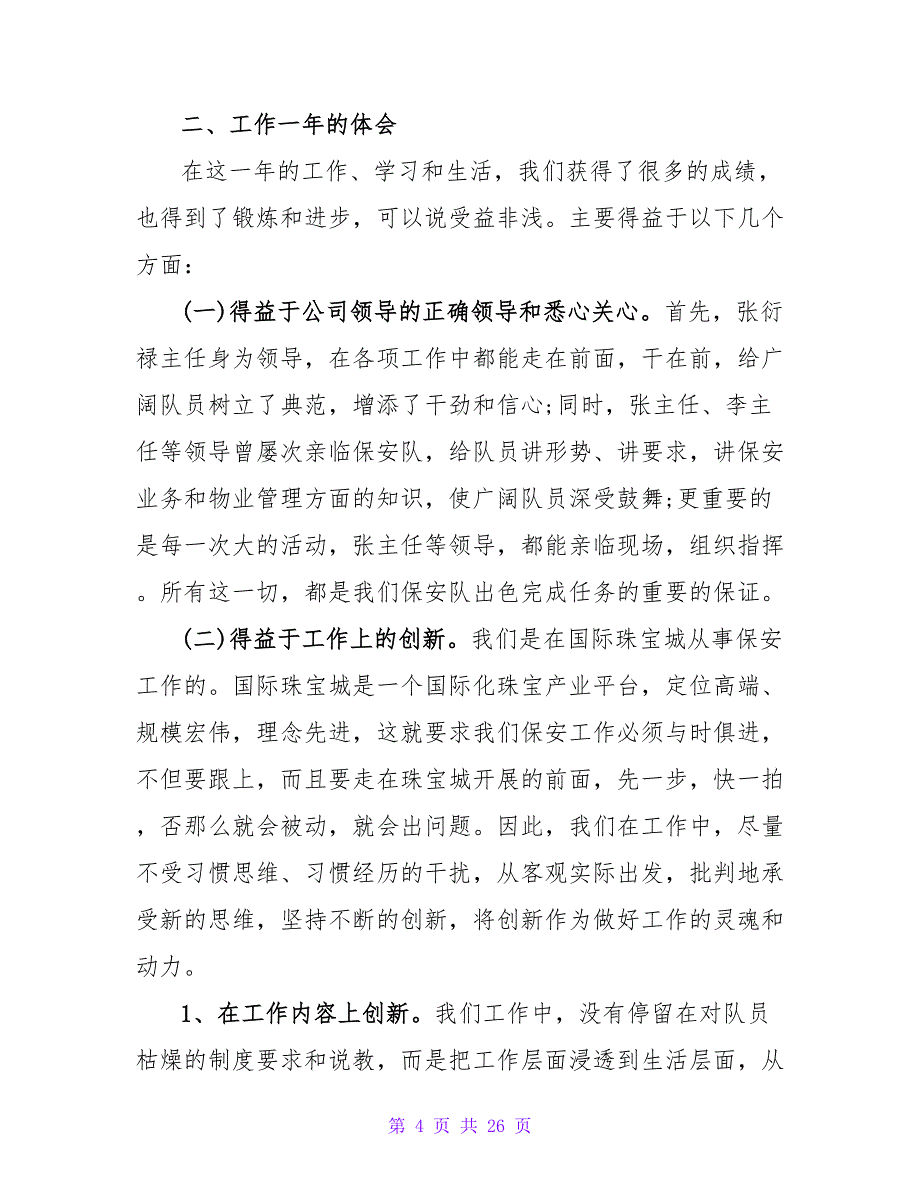 二、工作一年的体会
在这一年的工作、学习和生活，我们获得了很多的成绩，
也得到了锻炼和进步，可以说受益非浅。主要得益于以下几个
方面：
(一)得益于公司领导的正确领导和悉心关心。首先，张衍
禄主任身为领导，在各项工作中都能走在前面，干在前，给广
阔队员树立了典范，增添了干劲和信心;同时，张主任、李主
任等领导曾屡次亲临保安队，给队员讲形势、讲要求，讲保安
业务和物业管理方面的知识，使广阔队员深受鼓舞;更重要的
是每一次大的活动，张主任等领导，都能亲临现场，组织指挥
。所有这一切，都是我们保安队出色完成任务的重要的保证。
(二)得益于工作上的创新。我们是在国际珠宝城从事保安
工作的。国际珠宝城是一个国际化珠宝产业平台，定位高端、
规模宏伟，理念先进，这就要求我们保安工作必须与时俱进，
不但要跟上，而且要走在珠宝城开展的前面，先一步，快一拍
，否那么就会被动，就会出问题。因此，我们在工作中，尽量
不受习惯思维、习惯经历的干扰，从客观实际出发，批判地承
受新的思维，坚持不断的创新，将创新作为做好工作的灵魂和
动力。
1、在工作内容上创新。我们工作中，没有停留在对队员
枯燥的制度要求和说教，而是把工作层面浸透到生活层面，从
第 4 页 共 26 页